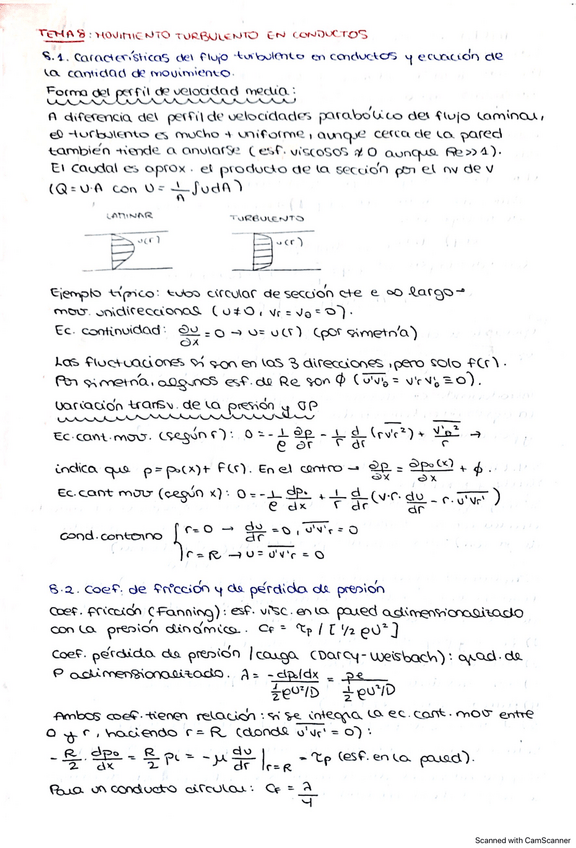 TEMA 8: MOVIMIENTO TURBULENTO EN CONDUCTOS
8.1. Características del flujo turbulento en conductos y ecuación de
la cantidad de movimiento.
Forma del perfil de velocidad media:
A diferencia del perfil de velocidades parabólico del flujo laminar,
el turbulento es mucho + uniforme, aunque cerca de la pared
también tiende a anularse (esf. viscosos ≠ 0 aunque Re>>1).
El caudal es aprox. el producto de la sección por el nv de v
(Q = U·A con U = 1/A ∫udA)
LAMINAR TURBULENTO
u(r) u(r)
Ejemplo típico: tubo circular de sección cte e ∞ largo →
mov. unidireccional (u≠0, vr = vθ = 0).
Ec. continuidad: ∂u/∂x = 0 → u = u(r) (por simetría)
Las fluctuaciones sí son en las 3 direcciones, pero solo f(r).
Por simetría, algunos esf. de Re son ϕ (u'v'θ = v'r v'θ ≡ 0).
Variación transv. de la presión y GP
Ec. cant. mov. (según r): 0 = -1/ρ ∂p/∂r - 1/r d/dr (r v'r²) + v'θ²/r →
indica que p = p₀(x) + f(r). En el centro → ∂p/∂x = ∂p₀(x)/∂x + ϕ.
Ec. cant mov (según x): 0 = -1/ρ dp₀/dx + 1/r d/dr (ν·r· du/dr - r· u'vr')
cond. contorno { r=0 → du/dr = 0, u'v'r = 0
r = R → u = u'v'r = 0
8.2. Coef. de fricción y de pérdida de presión
Coef. fricción (Fanning): esf. visc. en la pared adimensionalizado
con la presión dinámica. Cf = τp / [1/2 ρU²]
Coef. pérdida de presión / carga (Darcy-Weisbach): grad. de
P adimensionalizado. λ = -dp₀/dx / ½ρU²/D = pe / ½ρU²/D
Ambos coef. tienen relación: si se integra la ec. cant. mov entre
0 y r, haciendo r = R (donde u'vr' = 0):
-R/2 · dp₀/dx = R/2 pl = -μ du/dr |r=R = τp (esf. en la pared).
Para un conducto circular: Cf = λ/4
Scanned with CamScanner